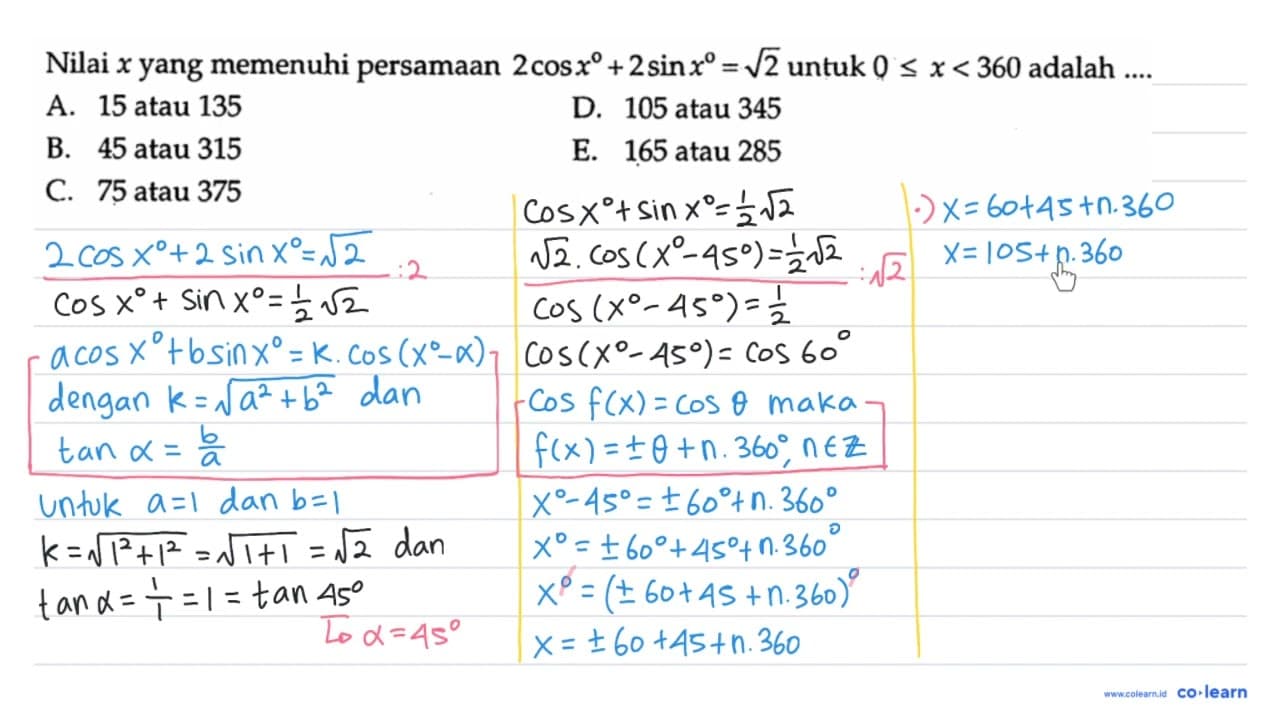 Nilai x yang memenuhi persamaan 2 cos x° + 2 sin x° = √2 untuk 0 ≤ x < 360 adalah ....
A. 15 atau 135
B. 45 atau 315
C. 75 atau 375
D. 105 atau 345
E. 165 atau 285
2 cos x° + 2 sin x° = √2 :2
cos x° + sin x° = 1/2 √2
a cos x° + b sin x° = k. cos (x° - α)
dengan k = √a² + b² dan
tan α = b/a
untuk a = 1 dan b = 1
k = √1² + 1² = √1 + 1 = √2 dan
tan α = 1/1 = 1 = tan 45°
↳ α = 45°
cos x° + sin x° = 1/2 √2
√2. cos (x° - 45°) = 1/2 √2 :√2
cos (x° - 45°) = 1/2
cos (x° - 45°) = cos 60°
cos f(x) = cos θ maka
f(x) = ± θ + n. 360°, n ∈ Z
x° - 45° = ± 60° + n. 360°
x° = ± 60° + 45° + n. 360°
x° = (± 60 + 45 + n. 360)°
x = ± 60 + 45 + n. 360
•) x = 60 + 45 + n. 360
x = 105 + n. 360
www.colearn.id co·learn